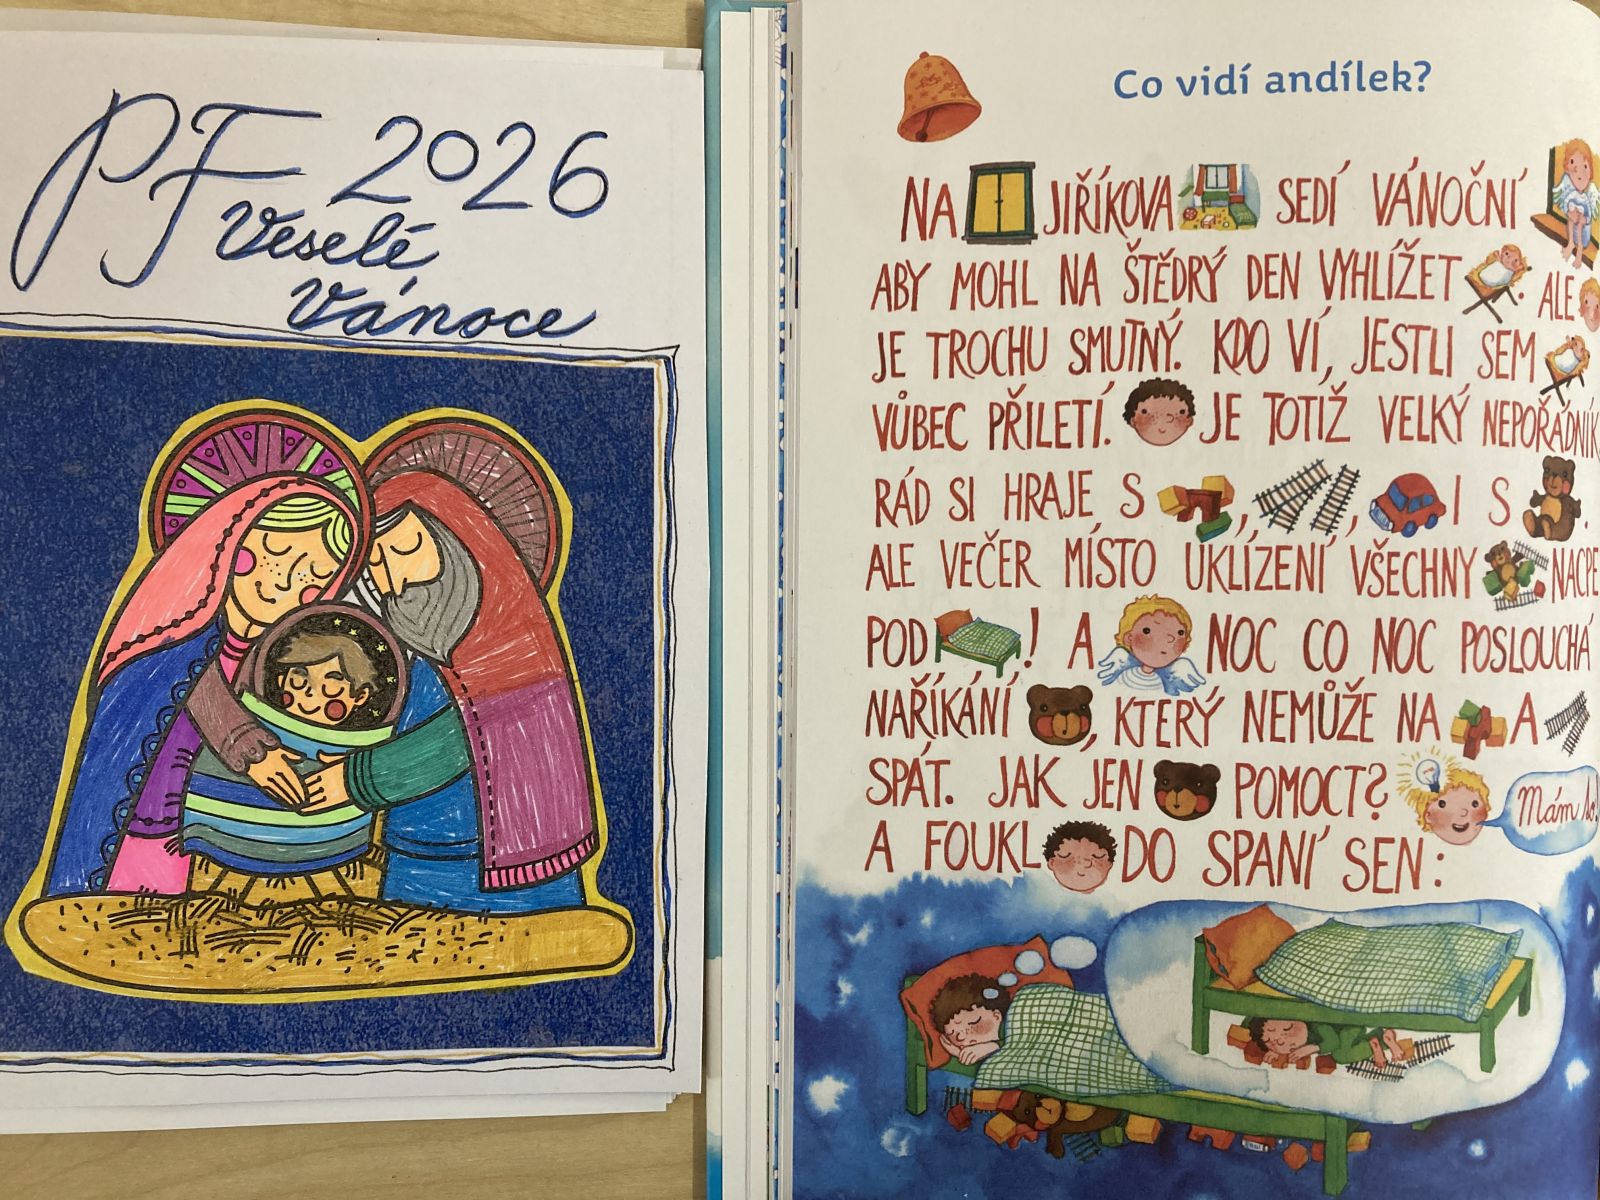 PF 2026
Veselé
Vánoce
Co vidí andílek?
NA JIŘÍKOVA SEDÍ VÁNOČNÍ
ABY MOHL NA ŠTĚDRÝ DEN VYHLÍŽET . ALE
JE TROCHU SMUTNÝ. KDO VÍ, JESTLI SEM
VŮBEC PŘILETÍ. JE TOTIŽ VELKÝ NEPOŘÁDNÍK
RÁD SI HRAJE S , , I S .
ALE VEČER MÍSTO UKLÍZENÍ VŠECHNY NACPE
POD ! A NOC CO NOC POSLOUCHÁ
NAŘÍKÁNÍ , KTERÝ NEMŮŽE NA A
SPÁT. JAK JEN POMOCT? Mám to!
A FOUKL DO SPANÍ SEN: